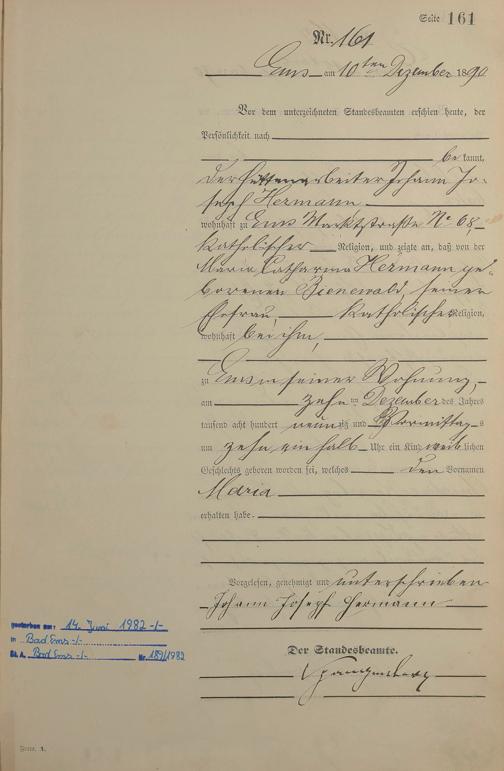 Seite 161
Nr. 161
Ems am 10ten Dezember 1890
Vor dem unterzeichneten Standesbeamten erschien heute, der
Persönlichkeit nach
be kannt,
der Hüttenarbeiter Johann Jo-
seph Hermann
wohnhaft zu Ems Marktstraße No 68,
katholischer Religion, und zeigte an, daß von der
Maria Catharina Hermann ge-
borenen Bienewald, seiner
Ehefrau, katholischer Religion,
wohnhaft bei ihm,
zu Ems in seiner Wohnung,
am zehn ten Dezember des Jahres
tausend acht hundert neunzig und Vormittags
um zehn einhalb Uhr ein Kind weiblichen
Geschlechts geboren worden sei, welches den Vornamen
Maria
erhalten habe.
Vorgelesen, genehmigt und unterschrieben
Johann Joseph Hermann
Der Standesbeamte.
Spangenberg
gestorben am: 14. Juni 1982 -/-
in Bad Ems -/-
St. A. Bad Ems -/- Nr. 189/1982
Form. A.